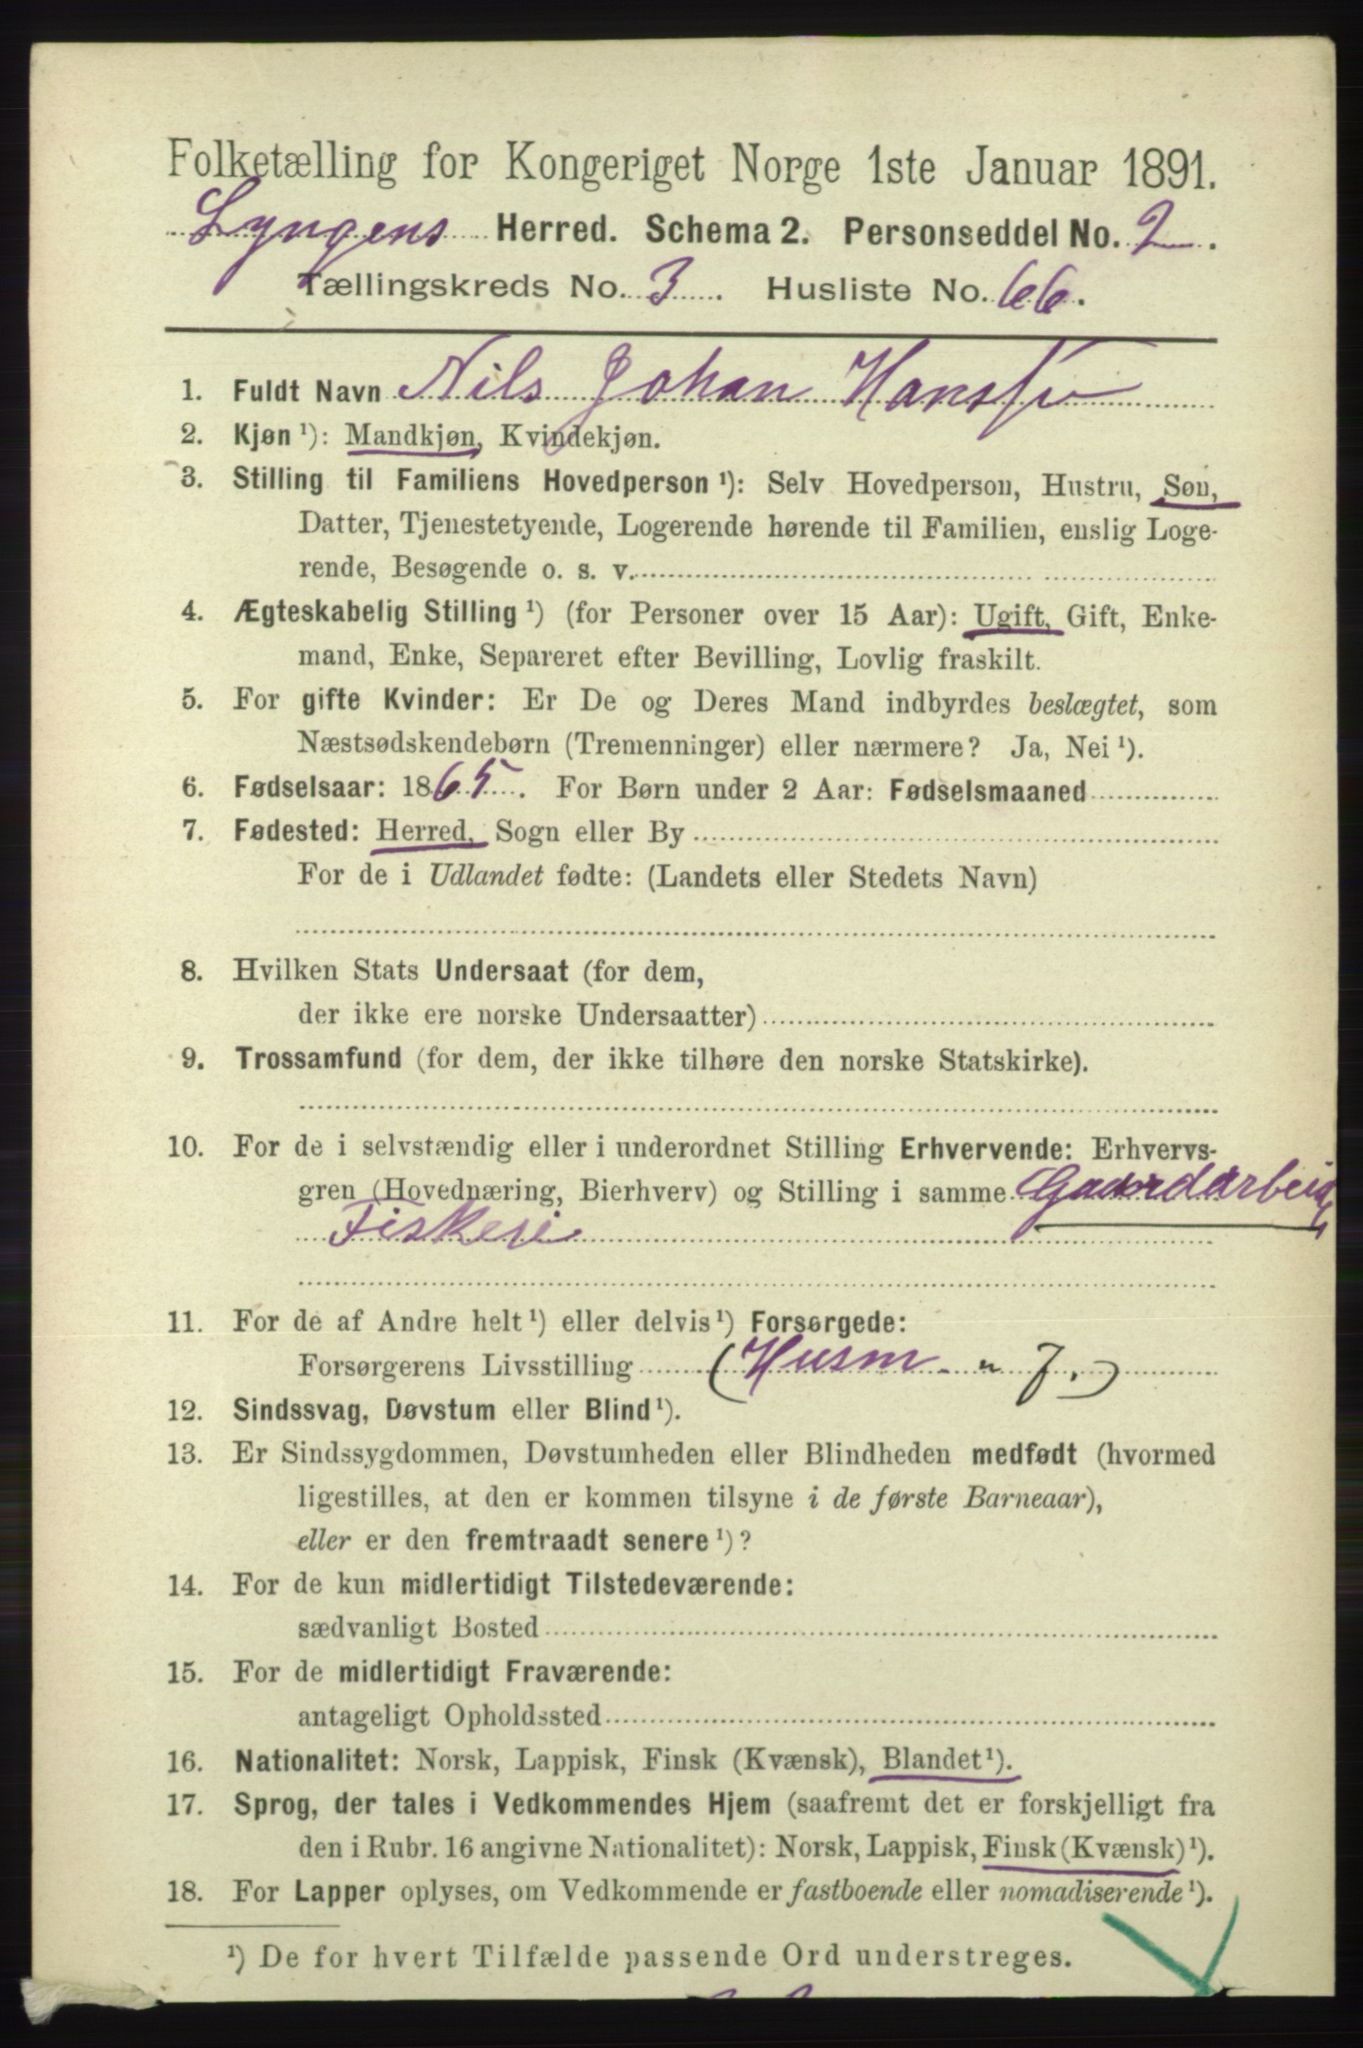 Folketælling for Kongeriget Norge 1ste Januar 1891.
Lyngens Herred. Schema 2. Personseddel No. 2.
Tællingskreds No. 3. Husliste No. 66.
1. Fuldt Navn Nils Johan Hanssen
2. Kjøn ¹): Mandkjøn, Kvindekjøn.
3. Stilling til Familiens Hovedperson ¹): Selv Hovedperson, Hustru, Søn,
Datter, Tjenestetyende, Logerende hørende til Familien, enslig Loge-
rende, Besøgende o. s. v.
4. Ægteskabelig Stilling ¹) (for Personer over 15 Aar): Ugift, Gift, Enke-
mand, Enke, Separeret efter Bevilling, Lovlig fraskilt.
5. For gifte Kvinder: Er De og Deres Mand indbyrdes beslægtet, som
Næstsødskendebørn (Tremenninger) eller nærmere? Ja, Nei ¹).
6. Fødselsaar: 1865. For Børn under 2 Aar: Fødselsmaaned
7. Fødested: Herred, Sogn eller By
For de i Udlandet fødte: (Landets eller Stedets Navn)
8. Hvilken Stats Undersaat (for dem,
der ikke ere norske Undersaatter)
9. Trossamfund (for dem, der ikke tilhøre den norske Statskirke).
10. For de i selvstændig eller i underordnet Stilling Erhvervende: Erhvervs-
gren (Hovednæring, Bierhverv) og Stilling i samme Gaardarbeid
Fiskeri
11. For de af Andre helt ¹) eller delvis ¹) Forsørgede:
Forsørgerens Livsstilling (Husm. " J.)
12. Sindssvag, Døvstum eller Blind ¹).
13. Er Sindssygdommen, Døvstumheden eller Blindheden medfødt (hvormed
ligestilles, at den er kommen tilsyne i de første Barneaar),
eller er den fremtraadt senere ¹)?
14. For de kun midlertidigt Tilstedeværende:
sædvanligt Bosted
15. For de midlertidigt Fraværende:
antageligt Opholdssted
16. Nationalitet: Norsk, Lappisk, Finsk (Kvænsk), Blandet ¹).
17. Sprog, der tales i Vedkommendes Hjem (saafremt det er forskjelligt fra
den i Rubr. 16 angivne Nationalitet): Norsk, Lappisk, Finsk (Kvænsk) ¹).
18. For Lapper oplyses, om Vedkommende er fastboende eller nomadiserende ¹).
¹) De for hvert Tilfælde passende Ord understreges.